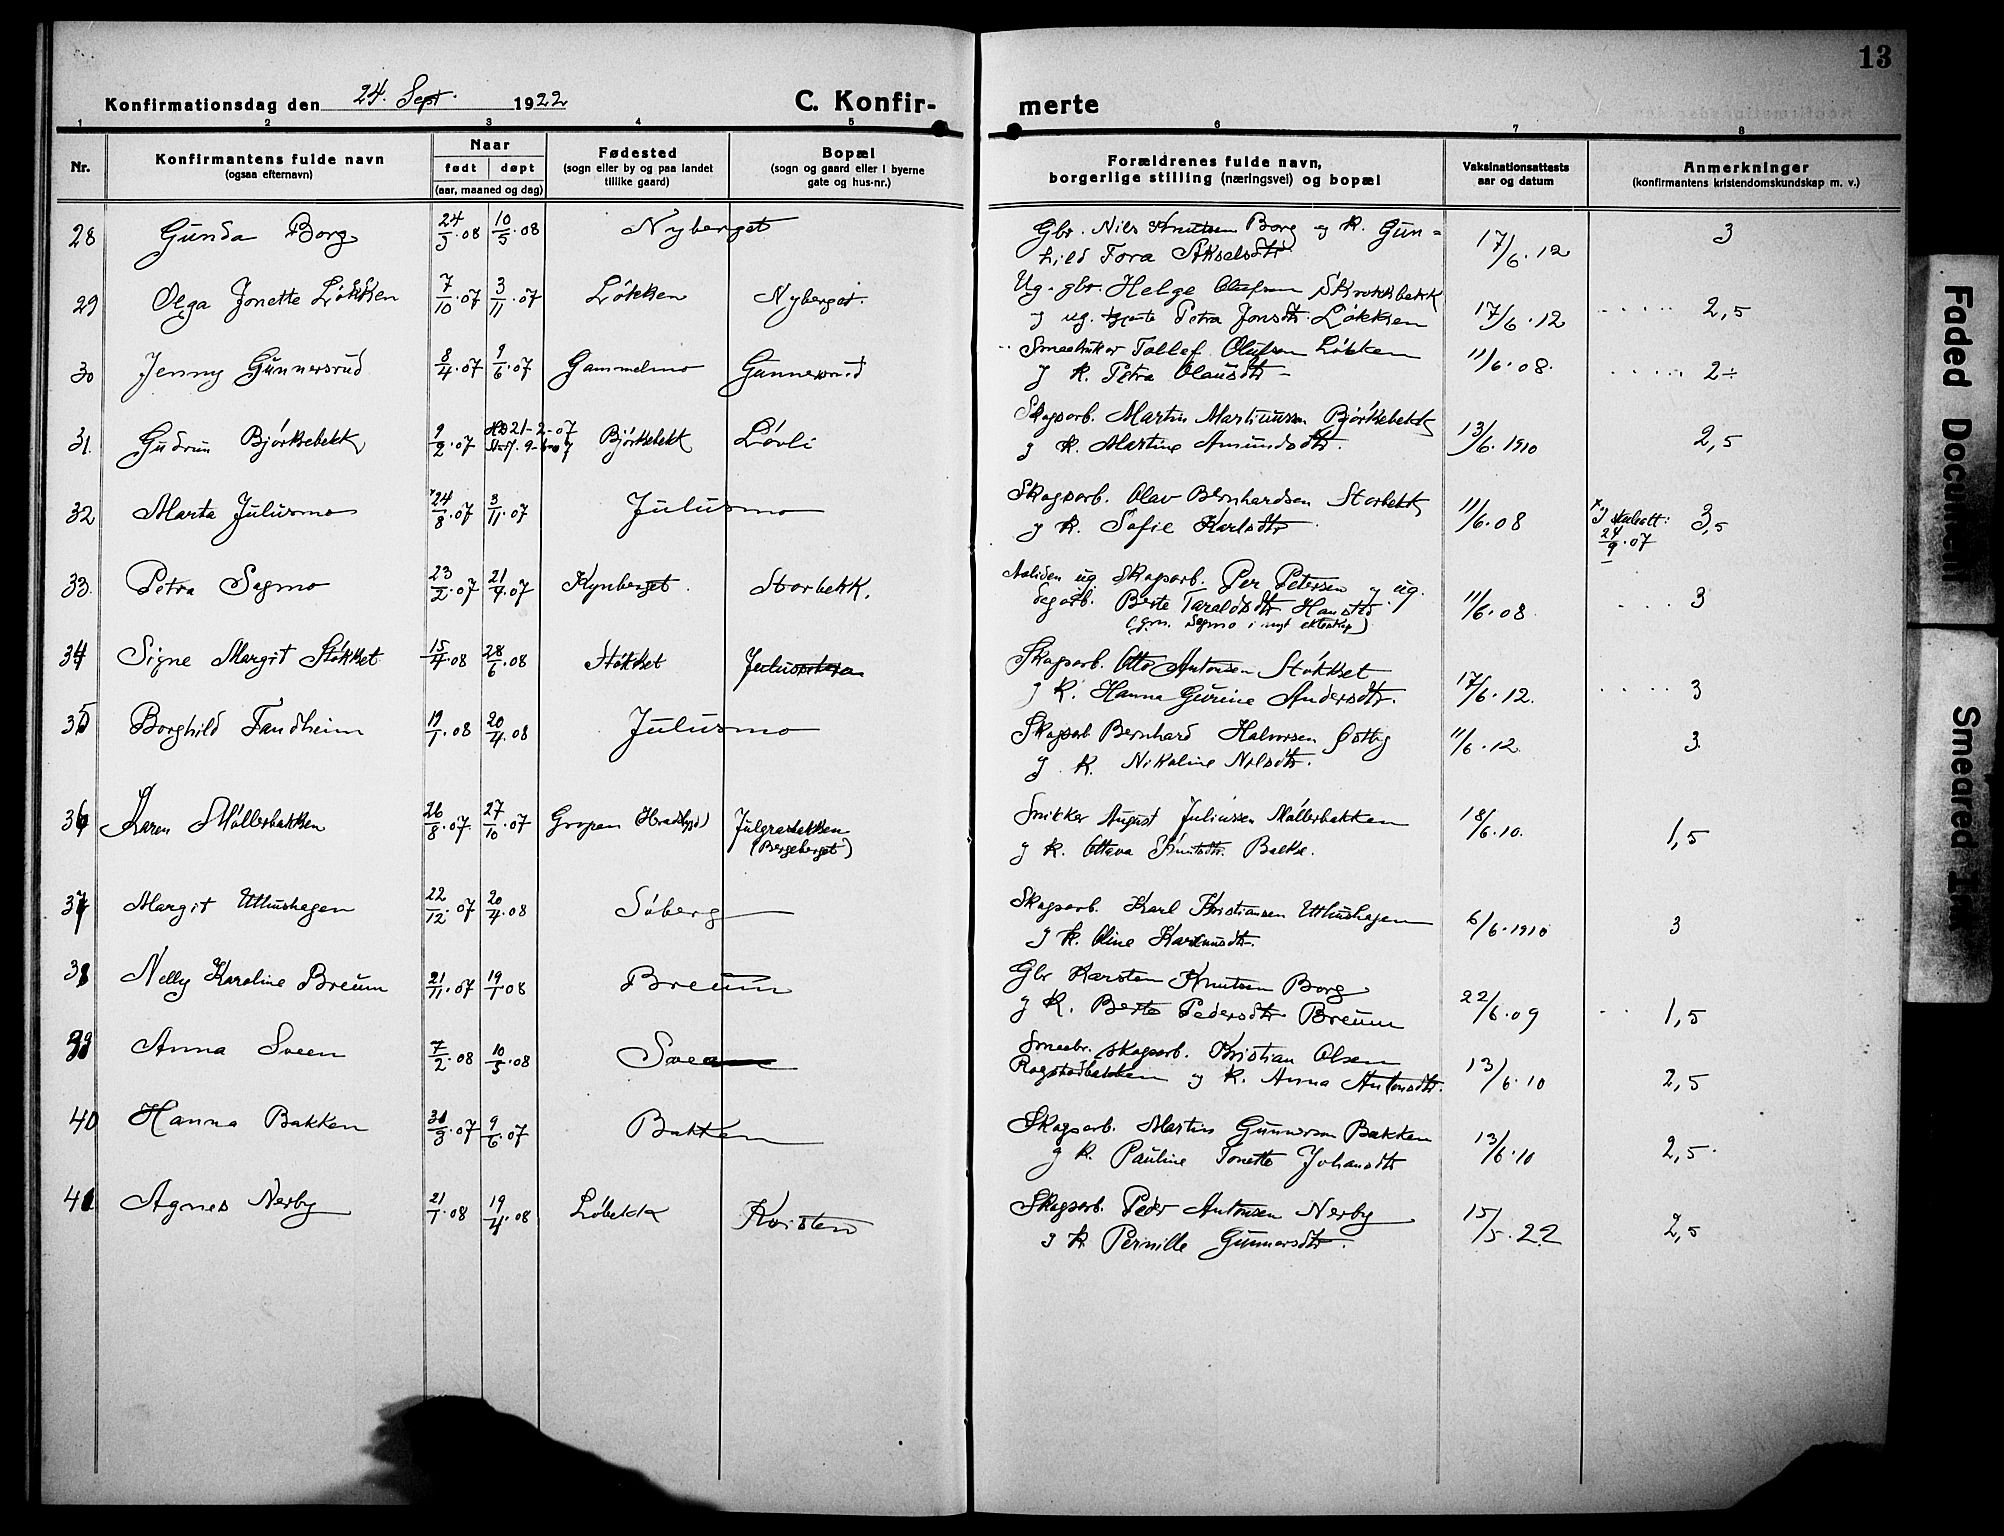 13
Konfirmationsdag den 24. Sept. 1922
C. Konfir-
merte
1 2 3 4 5 6 7 8
Nr.
Konfirmantens fulde navn
(ogsaa efternavn)
Naar
født døpt
(aar, maaned og dag)
Fødested
(sogn eller by og paa landet
tillike gaard)
Bopæl
(sogn og gaard eller i byerne
gate og hus-nr.)
Forældrenes fulde navn,
borgerlige stilling (næringsvei) og bopæl
Vaksinationsattests
aar og datum
Anmerkninger
(konfirmantens kristendomskundskap m. v.)
28 Gunda Borg 24/3.08 10/5.08 Nyberget
Gbr. Nils Knutsen Borg og k. Gun=
hild Tora Akselsdtr 17/6.12 3
29 Olga Jonette Løkken 7/10.07 3/11.07 Løkken Nyberget.
Ug. gbr. Helge Olafsen Skrokkbekk
og ug. Petra Jonsdtr. Løkken 17/6.12 2,5
30 Jenny Gunnersrud 8/4.07 9/6.07 Gammelmo Gunnersrud
Smaabruker Tollef Olufsen Løkken
g k. Petra Olausdtr 11/6.08. 2÷
31. Gudrun Bjørksebekk 9/2.07 21-2-07
9-6-07 Bjørksebekk Løvli
Skogsarb. Martin Martinussen Bjørksebekk
g k. Martine Amundsdtr. 13/6.1910 2,5
32 Marta Julusmo 24/8.07 3/11.07 Julusmo
Skogsarb. Olav Bernhardsen Storbekk
g k. Sofie Karlsdtr 11/6.08 24/9.07 3,5
33. Petra Sagmo 23/2.07 21/4.07 Kynberget. Storbekk.
ug. Skogsarb. Per Petersen og ug.
Berte Taraldsdtr. Hanstad
(gm. Sagmo i nyt ekteskap) 11/6.08 3
34 Signe Margit Støkket 15/4.08 28/6.08 Støkket
Skogsarb. Otto Antonsen Støkket
g k. Hanna Gurine Andersdtr. 17/6.12. 3
35 Borghild Tandheim 19/1.08 20/4.08 Julusmo
Skogsarb Bernhard Halvorsen
g k. Nikoline Nilsdtr. 11/6.12 3
36 Karen Møllerbakken 26/8.07. 27/10.07 Gropen
(Bergeberget)
Snikker August Juliussen Møllerbakken
g k. Ottava Knutsdtr. Bakke. 18/6.10. 1,5
37 Margit Uthushagen 22/12.07 20/4.08 Søberg
Skogsarb. Karl Kristiansen Uthushagen
g k. Oline 6/6.1910 3
38 Nelly Karoline Breum 21/11.07 19/1.08 Breum
Gbr Karsten Knutsen Borg
g k. Berte Pedersdtr Breum 22/6.09 1,5
39 Anna Sveen 7/2.08 10/5.08
Smaabr. skogsarb. Kristian Olsen
Rogstadbakken og k. Anna Antonsdtr. 13/6.10 2,5
40 Hanna Bakken 30/3.07 9/6.07 Bakken
Skogsarb. Martin Gunnersen Bakken
g k. Pauline Tonette Johansdtr 13/6.10 2,5.
41 Agnes Nerby 21/1.08 19/4.08 Løbekk Koisten
Skogsarb. Peder Antonsen Nerby
g k Pernille Gunnersdtr. 15/5.22 2,5
Faded Document
Smeared Ink